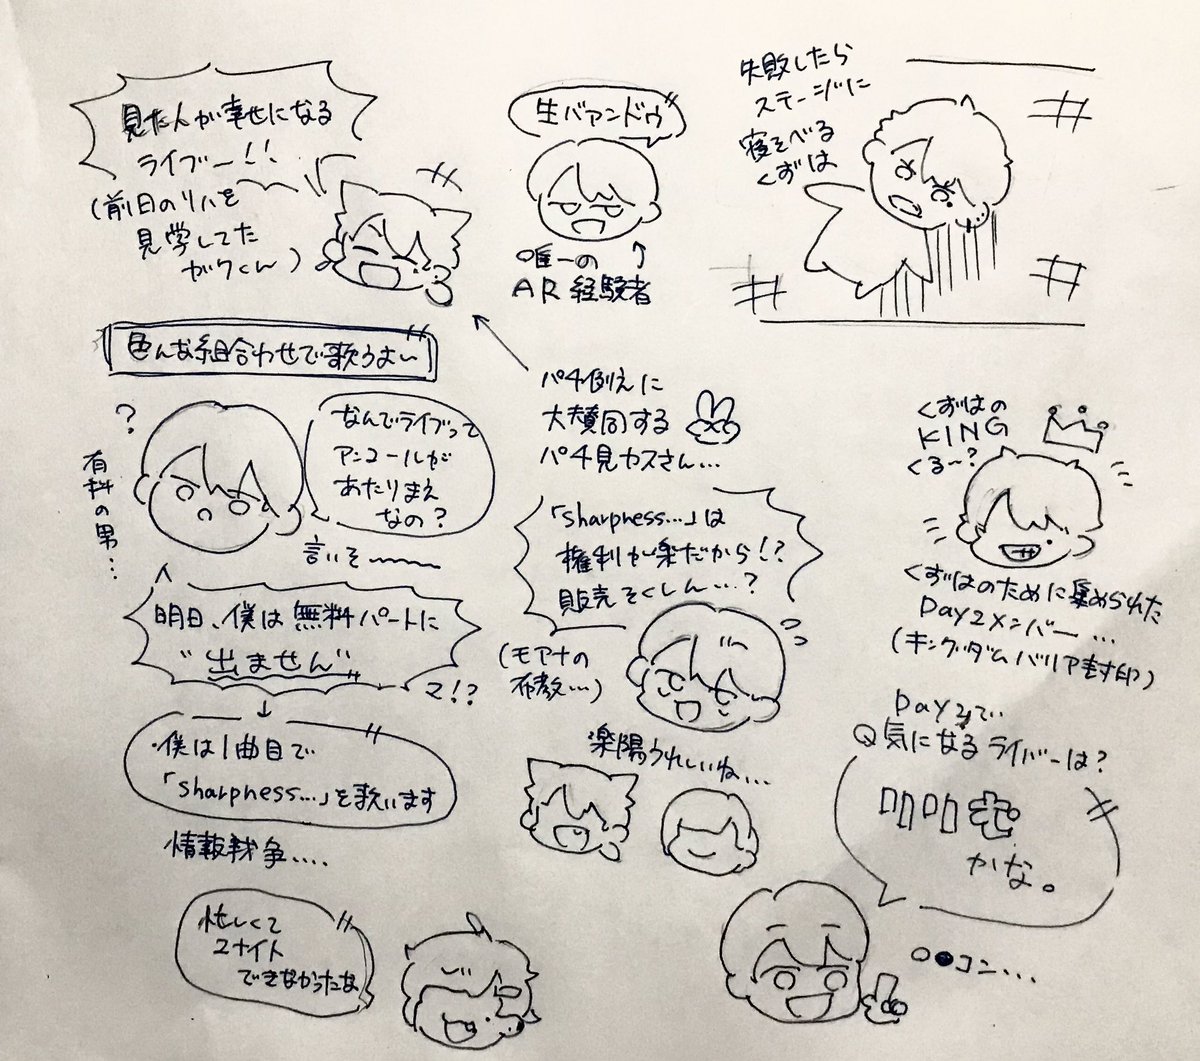 見た人が幸せになる
ライブー!!
(前日のリハを
見学してた
ガクくん)
生バアンドゥ
唯一の
AR経験者
失敗したら
ステージに
寝そべる
くずは
色んな組合わせで歌うよ〜
?
有料の男…
なんでライブって
アンコールが
あたりまえ
なの?
言いそ〜〜
明日、僕は無料パートに
"出ません"
マ!?
・僕は1曲目で
「sharpness…」を歌います
情報戦争….
忙しくて
ユナイト
できなかったな
パチ例えに
大賛同する
パチ見カスさん…
「sharpness…」は
権利が楽だから!?
販売そくしん…?
(モアナの
布教…)
楽陽うれしいね…
くずはの
KING
くる〜?
くずはのために集められた
Day2メンバー…
(キングダムバリア封印)
Day2で、
Q気になるライバーは?
叩叩
かな。
○●コン…